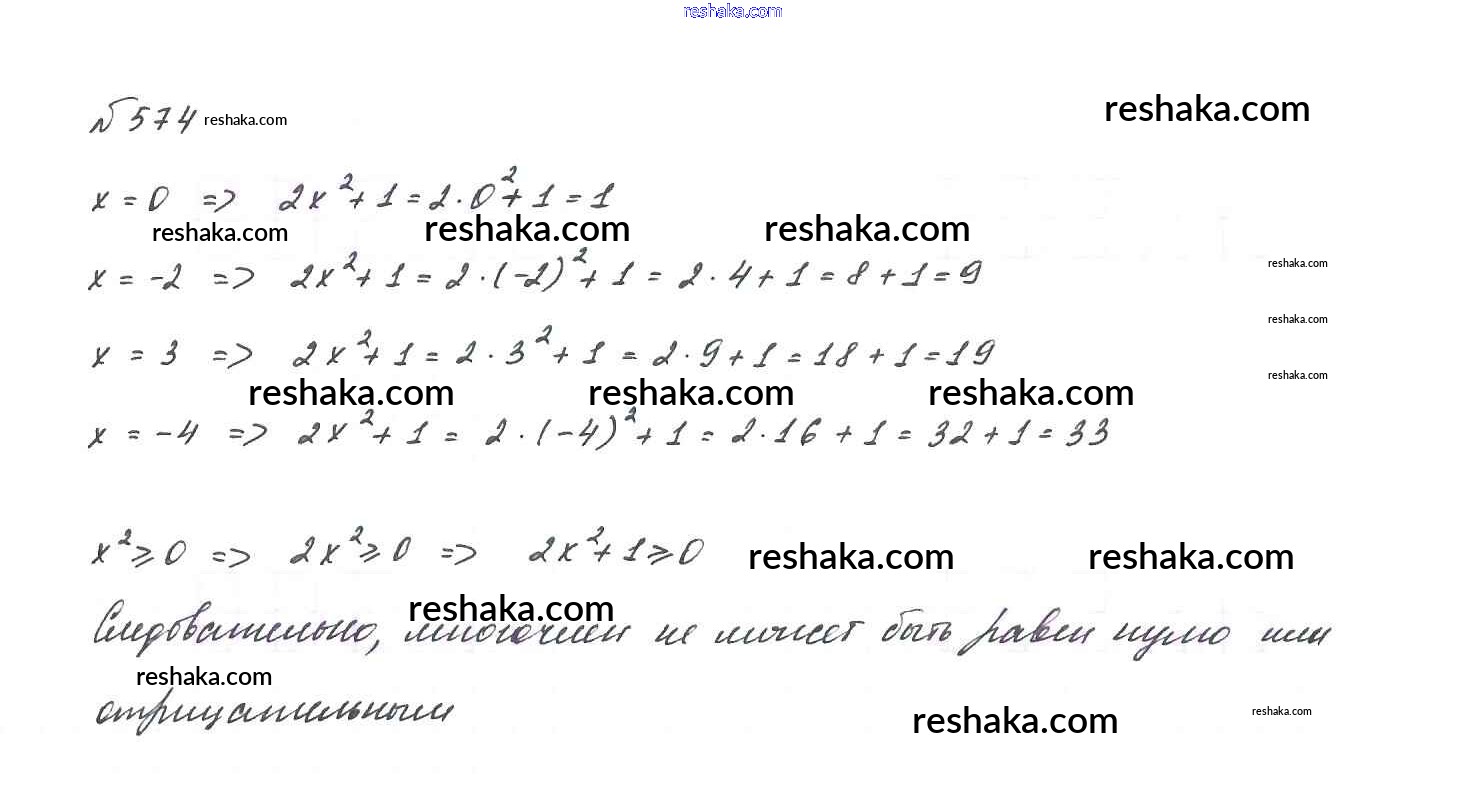 reshaka.com
№ 574 reshaka.com reshaka.com
x = 0 => 2x² + 1 = 2 · 0² + 1 = 1
reshaka.com reshaka.com reshaka.com
x = -2 => 2x² + 1 = 2 · (-2)² + 1 = 2 · 4 + 1 = 8 + 1 = 9
reshaka.com
reshaka.com
x = 3 => 2x² + 1 = 2 · 3² + 1 = 2 · 9 + 1 = 18 + 1 = 19
reshaka.com
reshaka.com reshaka.com reshaka.com
x = -4 => 2x² + 1 = 2 · (-4)² + 1 = 2 · 16 + 1 = 32 + 1 = 33
x² ⩾ 0 => 2x² ⩾ 0 => 2x² + 1 ⩾ 0
reshaka.com reshaka.com
reshaka.com
Следовательно, многочлен не может быть равен нулю или
reshaka.com
отрицательным
reshaka.com reshaka.com